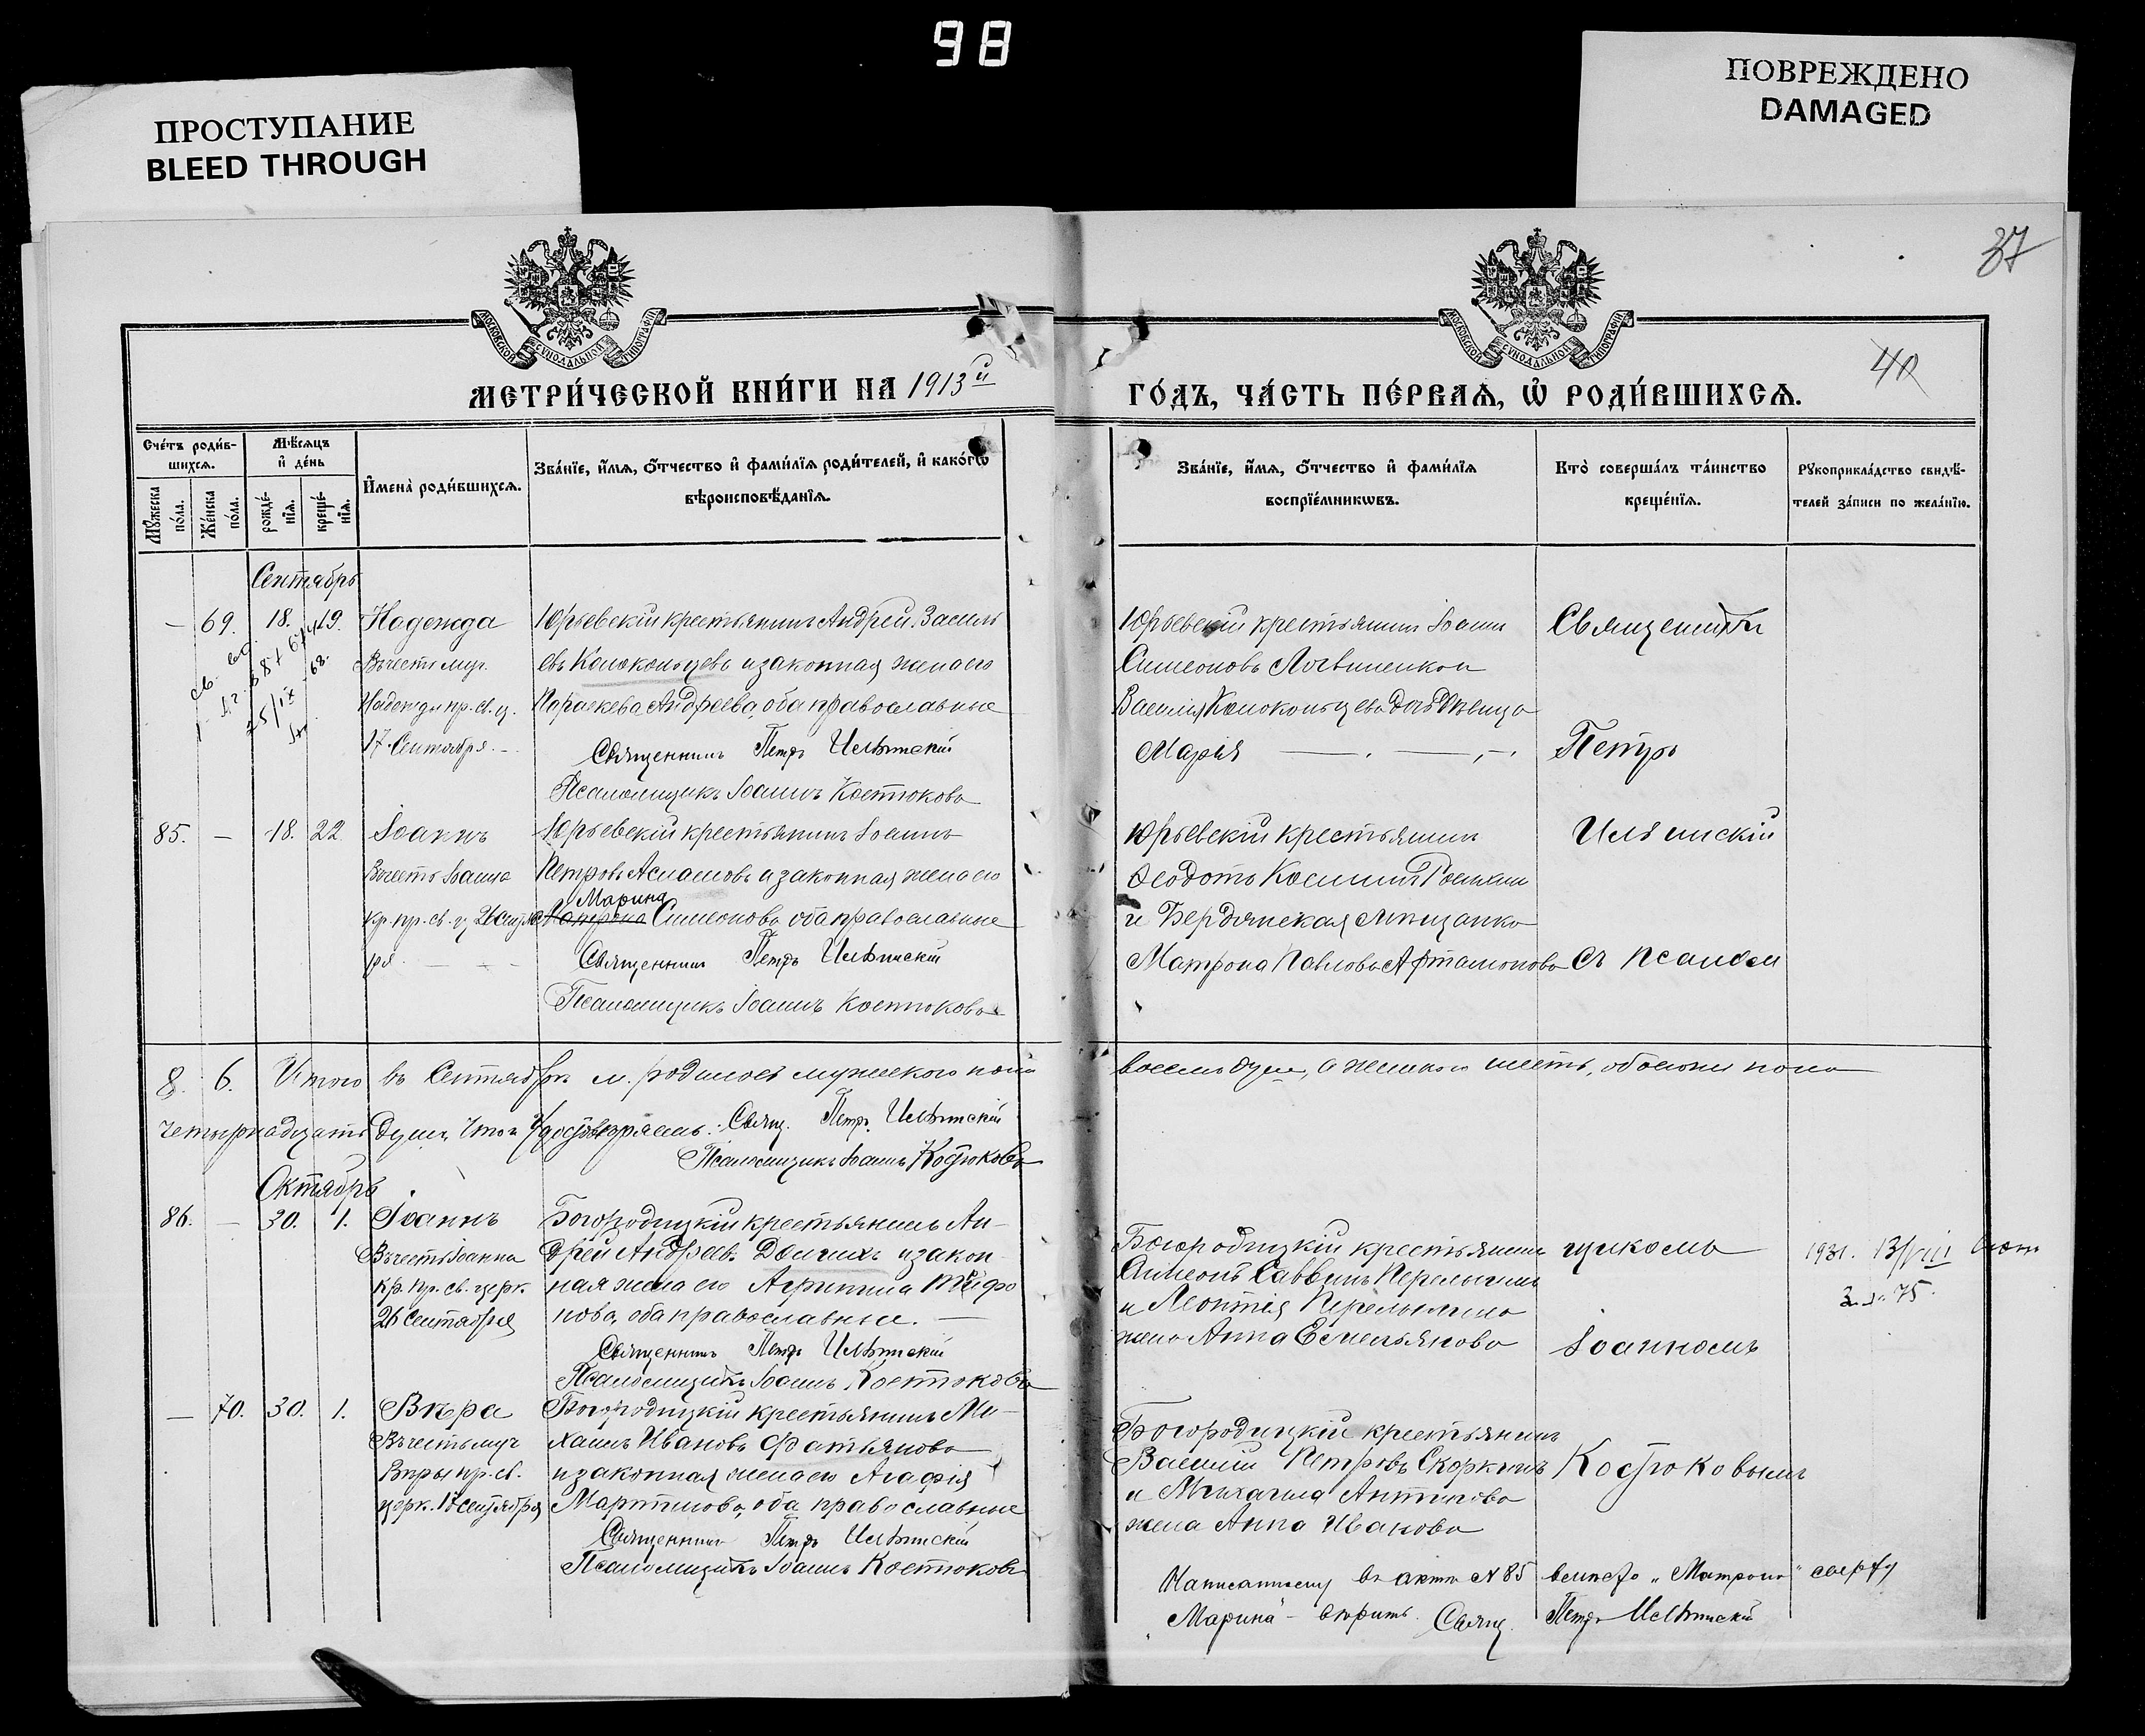 98
ПРОСТУПАНИЕ
BLEED THROUGH
ПОВРЕЖДЕНО
DAMAGED
37
40
МОСКОВСКОЙ СѴНОДАЛЬНОЙ ТИПОГРАФІИ
МОСКОВСКОЙ СѴНОДАЛЬНОЙ ТИПОГРАФІИ
МЕТРИ́ЧЕСКОЙ КНИ́ГИ НА 1913й
ГО́ДЪ, ЧА́СТЬ ПЕ́РВАѦ, Ѡ҆ РОДИ́ВШИХСѦ.
Сче́тъ роди́в-
шихсѧ.
Мѣ́сѧцъ
и҆ де́нь
Мꙋ́жеска по́ла.
Же́нска по́ла.
рожде́-
нїѧ.
креще́-
нїѧ.
И҆мена̀ роди́вшихсѧ.
Зва́нїе, и҆́мѧ, ѻ҆́тчество и҆ фами́лїѧ роди́телей, и҆ како́гѡ
вѣроисповѣ́данїѧ.
Зва́нїе, и҆́мѧ, ѻ҆́тчество и҆ фами́лїѧ
воспрїе́мникѡвъ.
Кто̀ соверша́лъ та́инство
креще́нїѧ.
Рꙋкоприкла́дство свидѣ́-
телей за́писи по жела́нїю.
Сентябрь
— 69. 18. 19. Надежда
Въ честь муч.
Надежды пр. св. ц.
17 Сентября. —
Юрьевскій крестьянинъ Андрей Василь
евъ Колокольцевъ и законная жена его
Параскева Андреева, оба православные
Священникъ Петръ Ильинскій
Псаломщикъ Іоаннъ Костюковъ
Юрьевскій крестьянинъ Іоаннъ
Симеоновъ
Василія Колокольцева дочь дѣвица
Марія
Священникъ
Петръ
85. — 18. 22 Іоаннъ
Въ честь Іоанна
кр. пр. св. ц. 26 сентяб
ря
Юрьевскій крестьянинъ Іоаннъ
Петровъ и законная жена его
Марина
Матрона Симеонова оба православные
Священникъ Петръ Ильинскій
Псаломщикъ Іоаннъ Костюковъ
Юрьевскій крестьянинъ
Ѳеодотъ Косьминъ
и Бердянская мѣщанка
Матрона Павлова Афтамонова
Ильинскій
съ псалом
8. 6. Итого въ Сентябрѣ м. родилось мужескаго пола
восемь душ, а женскаго шесть, обоего пола
четырнадцать душ, что и удостовѣряемъ: Свящ. Петръ Ильинскій
Псаломщикъ Іоаннъ Костюковъ
Октябрь
86. — 30. 1. Іоаннъ
Въ честь Іоанна
кр. пр. св. церк.
26 Сентября
Богородицкій крестьянинъ Ан-
дрей Андреевъ Долгихъ и закон
ная жена его Агрипина Трифо
нова, оба православные. —
Священникъ Петръ Ильинскій
Псаломщикъ Іоаннъ Костюковъ
Богородицкій крестьянинъ
Симеонъ Саввинъ Перелыгинъ
и Леонтія Перелыгина
жена Анна Емельянова
щикомъ
Іоанномъ
1931. 13/VIII
75.
— 70. 30. 1. Вѣра
Въ честь муч
Вѣры пр. св.
церк. 17 сентября
Богородицкій крестьянинъ Ми-
хаилъ Ивановъ Фатьяновъ
и законная жена его Агафія
Мартинова, оба православные
Священникъ Петръ Ильинскій
Псаломщикъ Іоаннъ Костюковъ
Богородицкій крестьянинъ
Василій Петровъ Скоркинъ
и Михаила Антипова
жена Анна Иванова
Костюковымъ
Написанному въ актѣ № 85 вмѣсто „Матрона" сверху
„Марина" — вѣрить. Свящ. Петръ Ильинскій